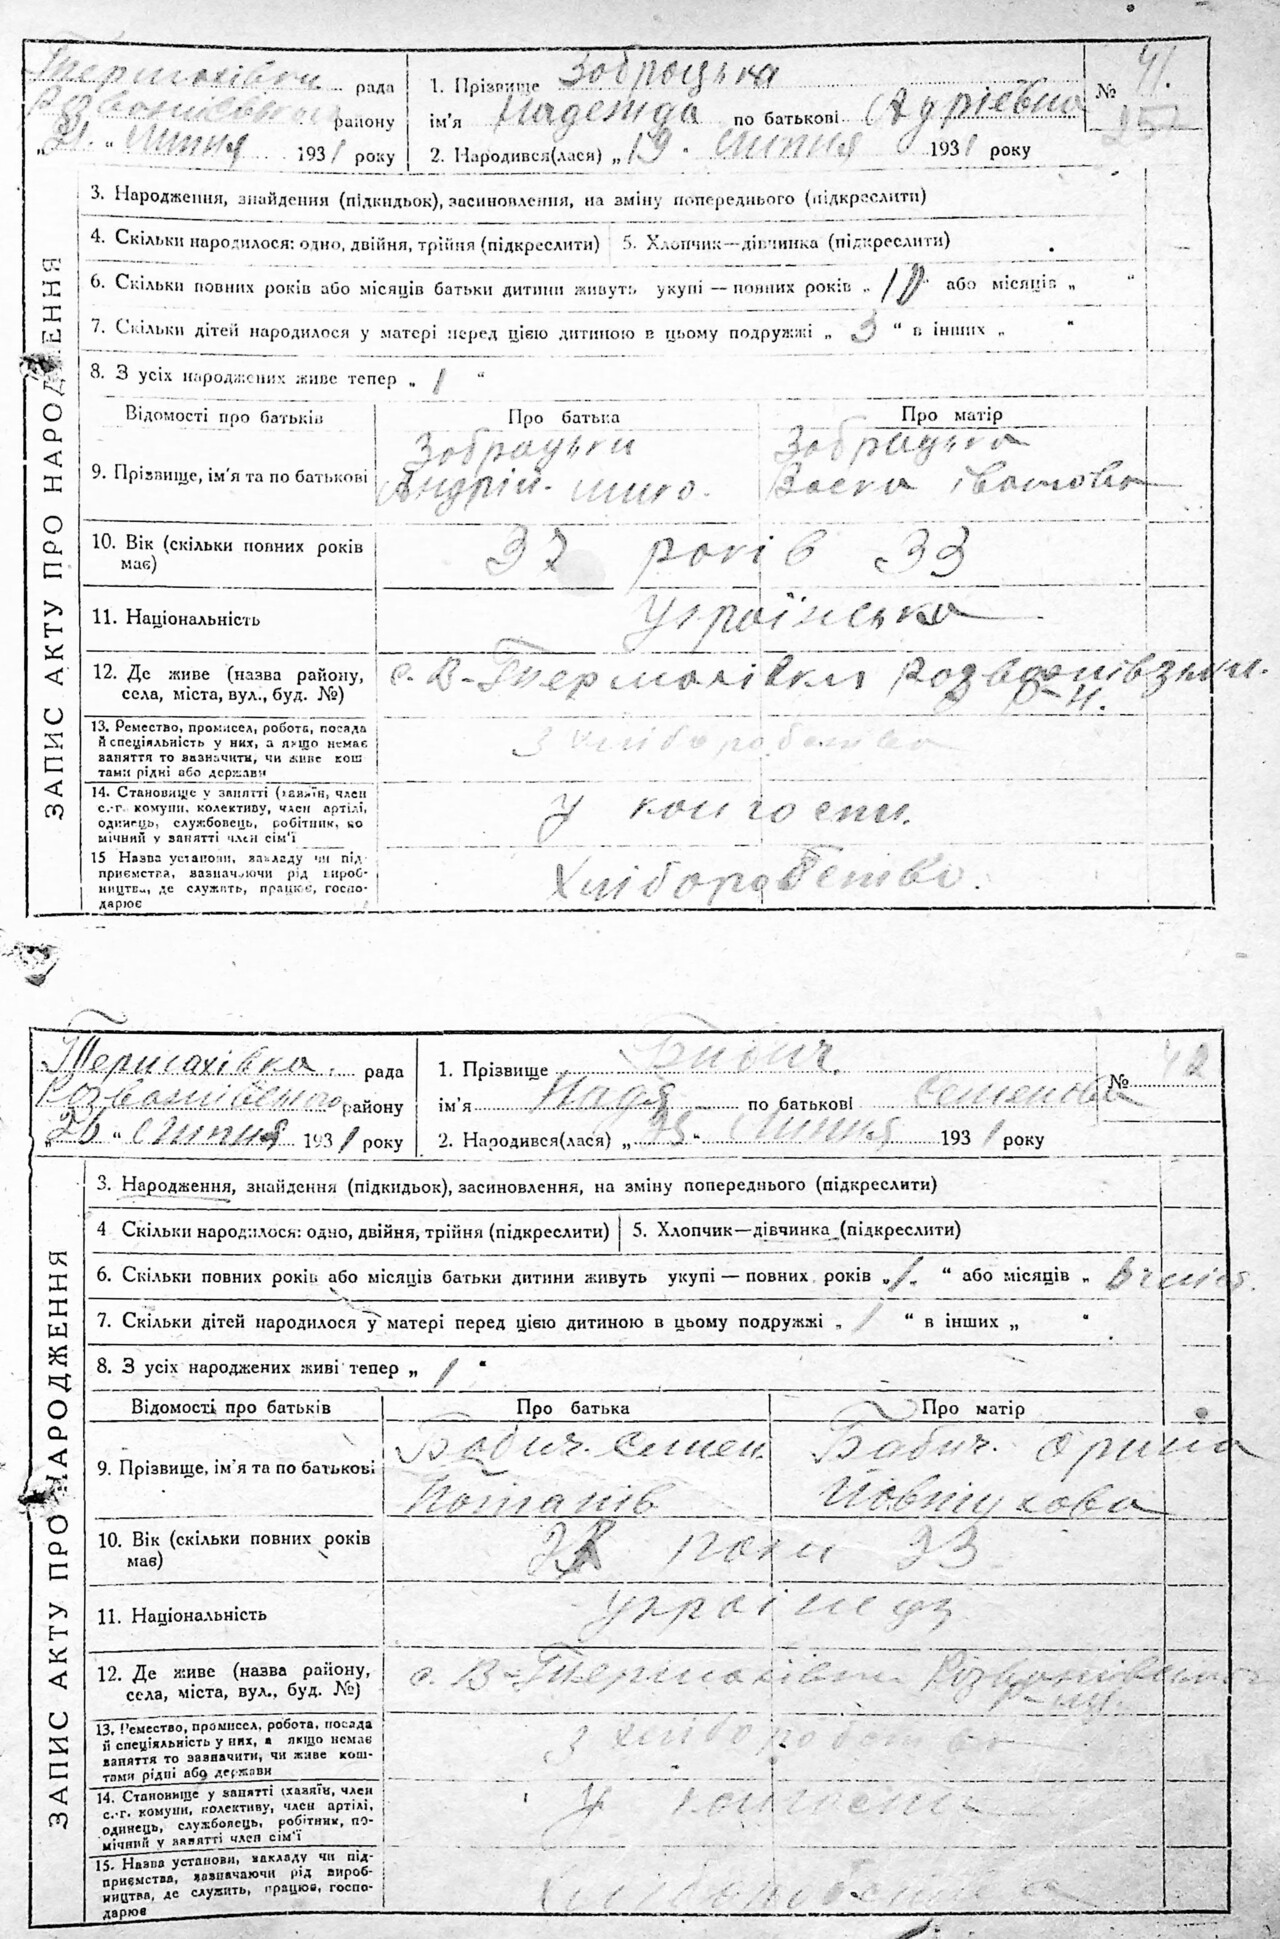 Термахівки рада
Розважівськ району
„21“ липня 1931 року
1. Прізвище Зобрацька
ім'я Надежда по батькові Адріевна
2. Народився(лася) „19“ липня 1931 року
№ 41.
252
ЗАПИС АКТУ ПРО НАРОДЖЕННЯ
3. Народження, знайдення (підкидьок), засиновлення, на зміну попереднього (підкреслити)
4. Скільки народилося: одно, двійня, трійня (підкреслити) 5. Хлопчик—дівчинка (підкреслити)
6. Скільки повних років або місяців батьки дитини живуть укупі — повних років „10“ або місяців „ “
7. Скільки дітей народилося у матері перед цією дитиною в цьому подружжі „3“ в інших „ “
8. З усіх народжених живе тепер „1“
Відомості про батьків Про батька Про матір
9. Прізвище, ім'я та по батькові
Зобрацьки Зобрацька
Андрій іванова
10. Вік (скільки повних років має)
37 років 33
11. Національність Українська
12. Де живе (назва району,
села, міста, вул., буд. №)
с. В-Термахівки
р-н.
13. Ремество, промисел, робота, посада
й спеціяльність у них, а якщо немає
заняття то вазначити, чи живе кош
тами рідні або держави
З хліборобства
14. Становище у занятті (хазяїн, член
с.-г. комуни, колективу, член артілі,
одинець, службовець, робітник, по
мічний у занятті член сім'ї
у колгоспи.
15 Назва установи, закладу чи під
приємства, вазначаючи рід вироб-
ництва, де служить, працює, госпо-
дарює
Хліборобство.
Термахівка. рада
Розважівського району
„26“ липня 1931 року
1. Прізвище Бабич.
ім'я Надя по батькові Семенова
2. Народився(лася) „25“ липня 1931 року
№ 42
ЗАПИС АКТУ ПРО НАРОДЖЕННЯ
3. Народження, знайдення (підкидьок), засиновлення, на зміну попереднього (підкреслити)
4 Скільки народилося: одно, двійня, трійня (підкреслити) 5. Хлопчик—дівчинка (підкреслити)
6. Скільки повних років або місяців батьки дитини живуть укупі — повних років „1.“ або місяців „
7. Скільки дітей народилося у матері перед цією дитиною в цьому подружжі „1“ в інших „ “
8. З усіх народжених живі тепер „1“
Відомості про батьків Про батька Про матір
9. Прізвище, ім'я та по батькові
Бабич. Семен. Бабич. Орина
Потапів
10. Вік (скільки повних років має)
роки 23
11. Національність українці
12. Де живе (назва району,
села, міста, вул., буд. №)
с. В-Термахівки
р-ну.
13. Ремество, промисел, робота, посада
й спеціяльність у них, а якщо немає
заняття то зазначити, чи живе кош-
тами рідні або держави
З хліборобства
14. Становище у занятті (хазяїн, член
с.-г. комуни, колективу, член артілі,
одинець, службовець, робітник, по-
мічний у занятті член сім'ї
у колгоспи
15. Назва установи, закладу чи під-
приємства, вазначаючи рід вироб-
ництва, де служить, працює, госпо-
дарює